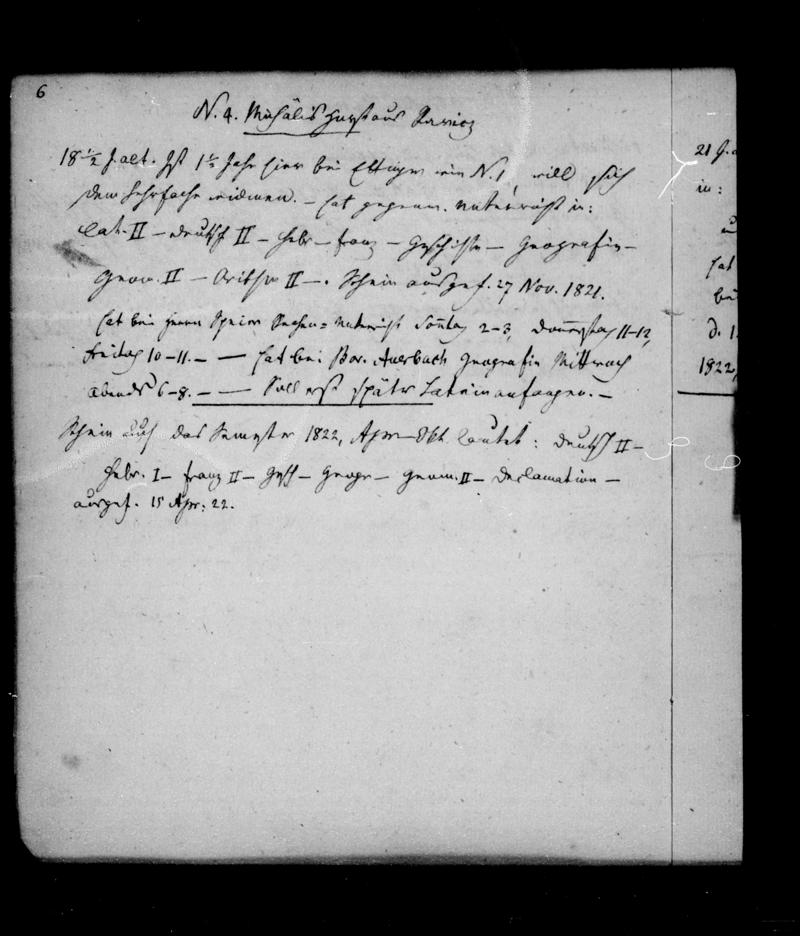 6
N. 4. Michälis Hurst aus Rawicz
18 1/2 J. alt. Ist 1 1/2 Jahr hier bei Ettinger wie N. 1, will sich
dem Lehrfache widmen. – hat gegenw. Unterricht in:
Lat. II – deutsch II – Hebr – franz – Geschichte – Geografie –
Geom. II – Arithm II –. Schein ausgef. 27 Nov. 1821.
hat bei Herrn Speier Rechen-Unterricht Soñtag 2–3, Doñerstag 11–12,
Freitag 10–11. – — hat bei Bar. Auerbach Geografie Mittwoch
abends 6–8. – — Soll erst später Latein anfangen. –
Schein auf das Semester 1822, Apr – Okt. lautet: deutsch II –
Hebr. I – franz II – Gesch – Geogr – Geom. II – Declamation –
ausgef. 15 Apr: 22.
21 J. a
in:
hat
bei
d. 1
1822,